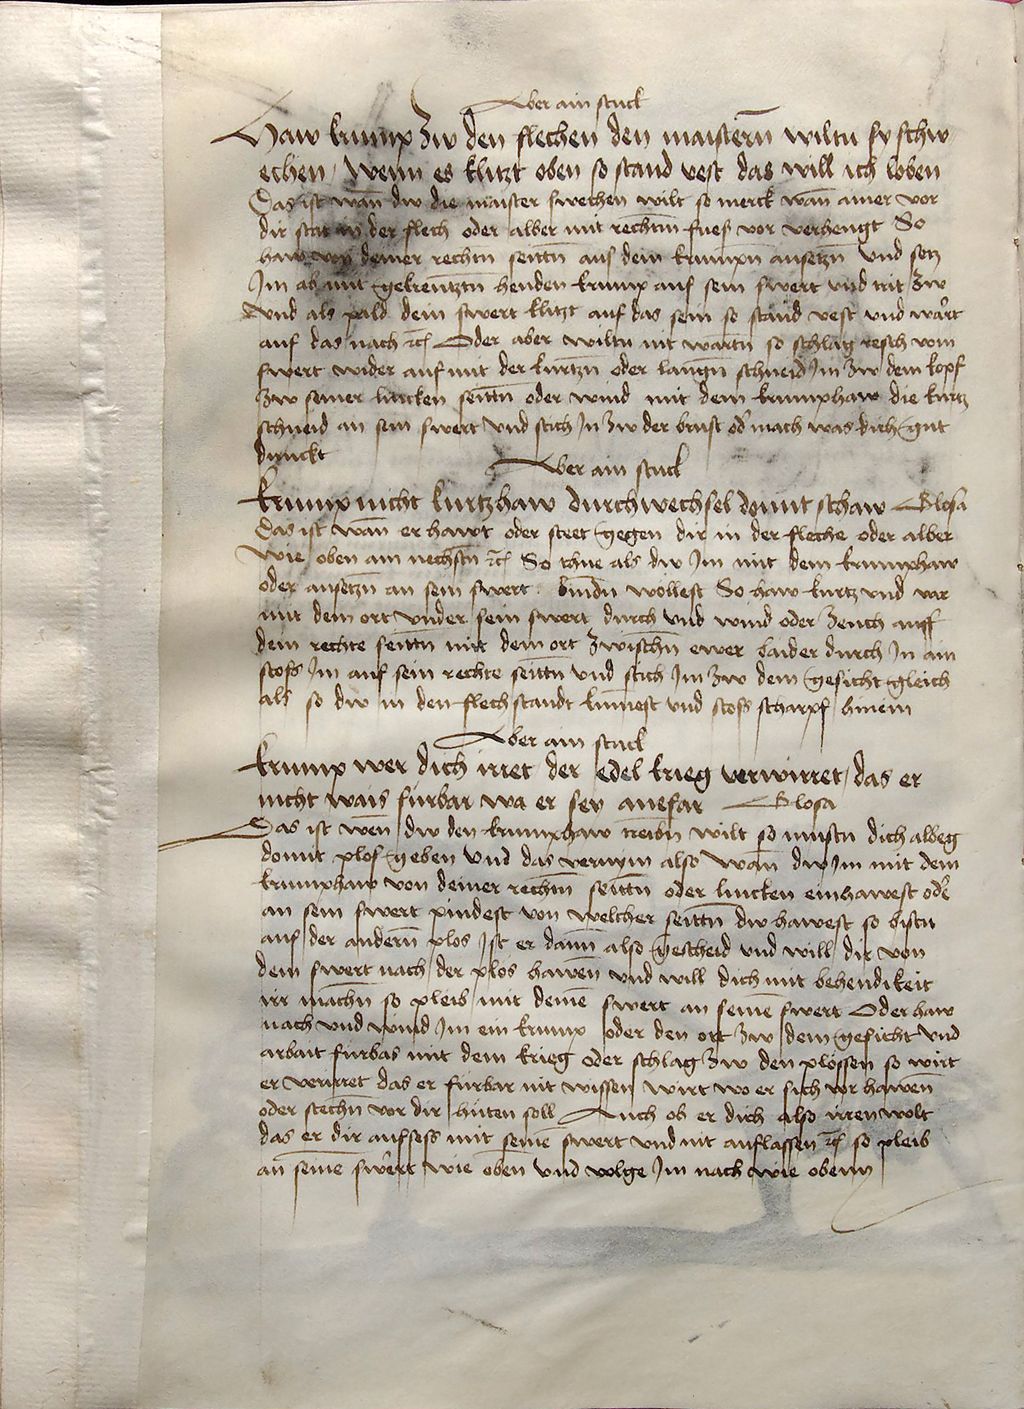 Aber ain stuck
Haw krump zw den flechen den maistern̄ wiltu sy schw
echen / Wenn es klitzt oben so stand vest das will ich loben
Das ist wan̄ dw die maister swechen wilt so merck wan̄ ainer vor
dir stat in der flech oder alber mit rechtm̄ fues vor verhengt So
haw von deiner rechtn̄ seittn̄ aus dem krumpn̄ ansetzn̄ und setz
Im ab mit gekreutztn̄ henden krump auf sein swert und trit zw
Und als pald dein swert klitzt auf das sein so stand vest und wart
auf das nach ꝛc̄ Oder aber wiltu nit wartn̄ so schlag resch vom
swert wider auf mit der kurtzn̄ oder langn̄ schneid Im zw dem kopf
zw seiner lincken seittn̄ oder wind mit dem krumphaw die kurtz
schneid an sein swert und stich In zw der brust od' mach was dich gut
dunckt
Aber ain stuck
Krump nicht kurtzhaw durchwechsel domit schaw Glosa
Das ist wan̄ er hawt oder steet gegen dir in der fleche oder alber
wie oben am nechstn̄ ꝛc̄ So thue als dw Im mit dem krumphaw
oder ansetzn̄ an sein swert bindn̄ wollest So haw kurtz und var
mit dem ort under sein swert durch und wind oder zeuch auff
dein rechte seittn̄ mit dem ort zwischn̄ ewer baider durch In ain
stoss Im auf sein rechte seittn̄ und stich Im zw dem gesicht gleich
als so dw in den flech standt kumest und stoss scharpf hinein
Aber ain stuck
Krump wer dich irret der edel krieg verwirret / das er
nicht wais furbar wa er sey anefar Glosa
Das ist wen̄ dw den krumphaw treibn̄ wilt so mustu dich albeg
domit plos geben Und das vernym also Wan̄ dw Im mit dem
krumphaw von deiner rechtn̄ seittn̄ oder lincken einhawest od'
an sein swert pindest von welcher seittn̄ dw hawest so bistu
auf der andern̄ plos Ist er dann also gescheid und will dir von
dem swert nach der plos hawen̄ und will dich mit behendikeit
irr machn̄ so pleib mit deinē swert an seinē swert Oder haw
nach und wind Im ein krump oder den ort zw dem gesicht und
arbait furbas mit dem krieg oder schlag zw den plössen so wirt
er verirret das er furbar nit wissen wirt wo er sich vor hawen̄
oder stechn̄ vor dir hüten soll Auch ob er dich also irren wolt
das er dir aufsess mit seinē swert und nit auflassen ꝛc̄ so pleib
an seinē swert wie oben und volge Im nach wie obenn